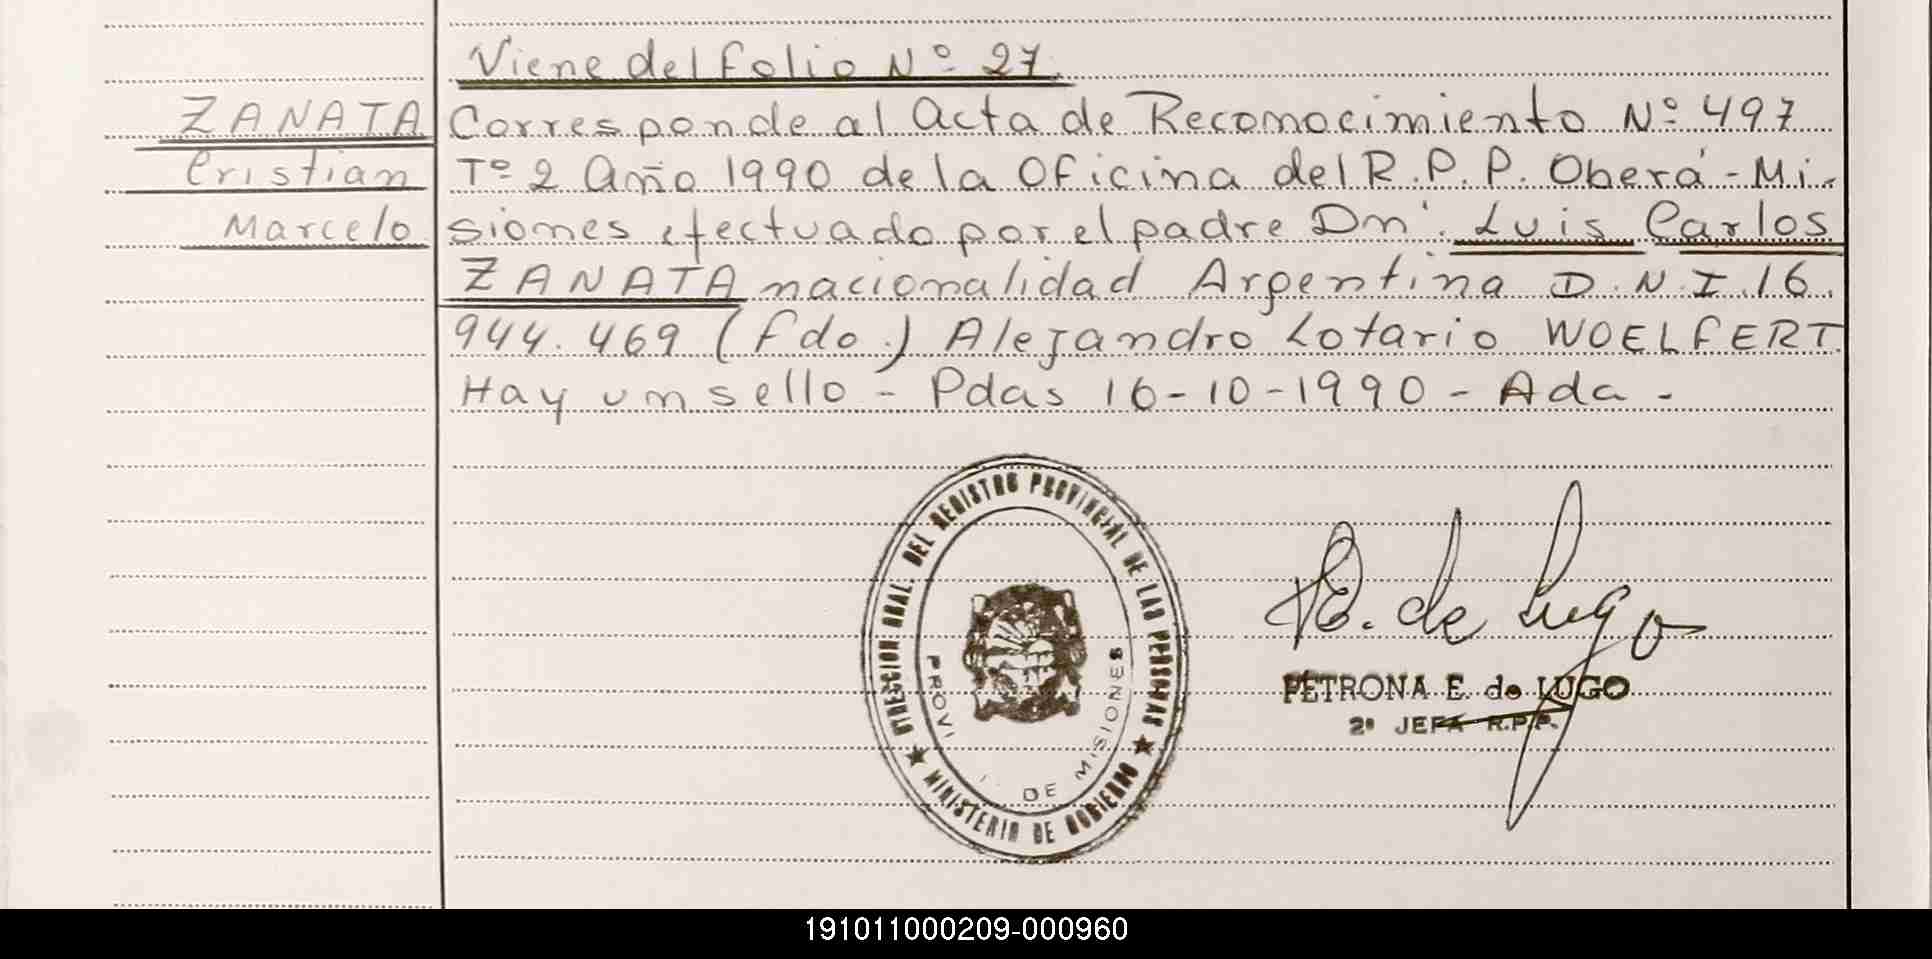 Viene del folio Nº 27.
ZANATA
Cristian
Marcelo
Corresponde al Acta de Reconocimiento Nº 497
Tº 2 Año 1990 de la Oficina del R.P.P. Oberá - Mi-
siones efectuado por el padre Dn. Luis Carlos
ZANATA nacionalidad Argentina D.N.I. 16.
944.469 (fdo.) Alejandro Lotario WOELFERT
Hay un sello - Pdas 16-10-1990 - Ada -
DIRECCION GRAL. DEL REGISTRO PROVINCIAL DE LAS PERSONAS
★ MINISTERIO DE GOBIERNO ★
PROVI DE MISIONES
E. de Lugo
PETRONA E. de LUGO
2ª JEFA R.P.P.
191011000209-000960